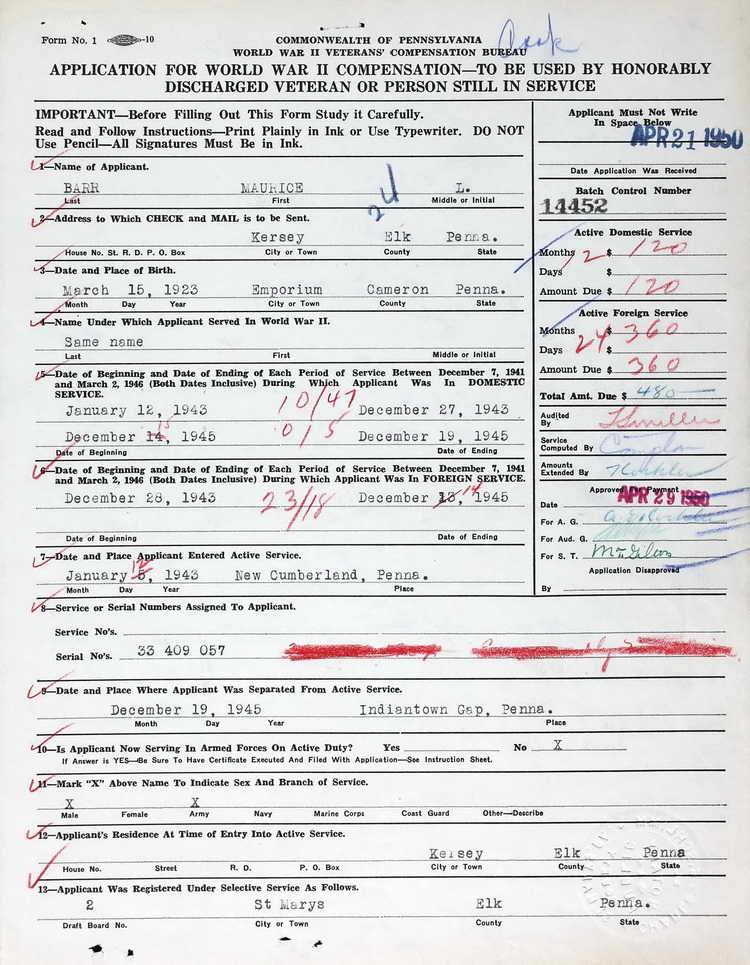 Form No. 1 -10
COMMONWEALTH OF PENNSYLVANIA
WORLD WAR II VETERANS' COMPENSATION BUREAU
APPLICATION FOR WORLD WAR II COMPENSATION—TO BE USED BY HONORABLY
DISCHARGED VETERAN OR PERSON STILL IN SERVICE
IMPORTANT—Before Filling Out This Form Study it Carefully.
Read and Follow Instructions—Print Plainly in Ink or Use Typewriter. DO NOT
Use Pencil—All Signatures Must Be in Ink.
Applicant Must Not Write
In Space Below
APR 21 1950
Date Application Was Received
Batch Control Number
14452
1—Name of Applicant.
BARR MAURICE L.
Last First Middle or Initial
24
2—Address to Which CHECK and MAIL is to be Sent.
Kersey Elk Penna.
House No. St. R. D. P. O. Box City or Town County State
3—Date and Place of Birth.
March 15, 1923 Emporium Cameron Penna.
Month Day Year City or Town County State
4—Name Under Which Applicant Served In World War II.
Same name
Last First Middle or Initial
5—Date of Beginning and Date of Ending of Each Period of Service Between December 7, 1941
and March 2, 1946 (Both Dates Inclusive) During Which Applicant Was In DOMESTIC
SERVICE.
January 12, 1943 10/47 December 27, 1943
December 14, 15 1945 0/5 December 19, 1945
Date of Beginning Date of Ending
6—Date of Beginning and Date of Ending of Each Period of Service Between December 7, 1941
and March 2, 1946 (Both Dates Inclusive) During Which Applicant Was In FOREIGN SERVICE.
December 28, 1943 23/18 December 13, 14 1945
Date of Beginning Date of Ending
7—Date and Place Applicant Entered Active Service.
January 5, 12 1943 New Cumberland, Penna.
Month Day Year Place
Active Domestic Service
Months 12 $ 120
Days $
Amount Due $ 120
Active Foreign Service
Months 24 $ 360
Days $
Amount Due $ 360
Total Amt. Due $ 480
Audited
By
Service
Computed By
Amounts
Extended By
Approved For Payment
Date APR 29 1950
For A. G.
For Aud. G.
For S. T.
Application Disapproved
By
8—Service or Serial Numbers Assigned To Applicant.
Service No's.
Serial No's. 33 409 057
9—Date and Place Where Applicant Was Separated From Active Service.
December 19, 1945 Indiantown Gap, Penna.
Month Day Year Place
10—Is Applicant Now Serving In Armed Forces On Active Duty? Yes No X
If Answer is YES—Be Sure To Have Certificate Executed And Filed With Application—See Instruction Sheet.
11—Mark "X" Above Name To Indicate Sex and Branch of Service.
X X
Male Female Army Navy Marine Corps Coast Guard Other—Describe
12—Applicant's Residence At Time of Entry Into Active Service.
Kersey Elk Penna
House No. Street R. D. P. O. Box City or Town County State
13—Applicant Was Registered Under Selective Service As Follows.
2 St Marys Elk Penna.
Draft Board No. City or Town County State